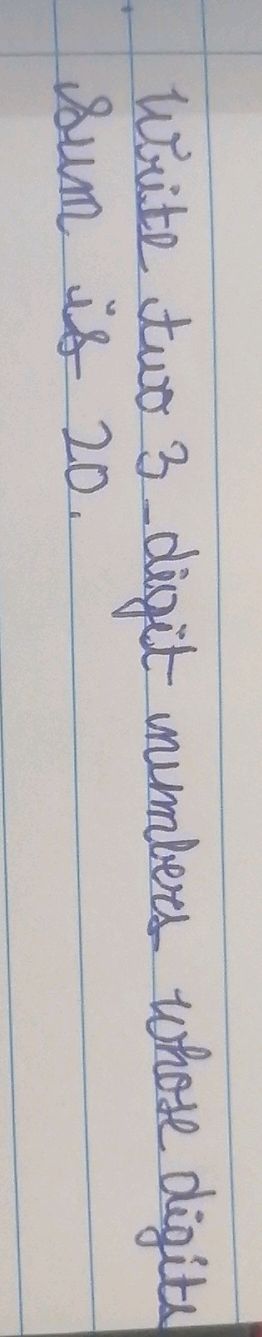 Write two 3-digit numbers whose digits
sum is 20.